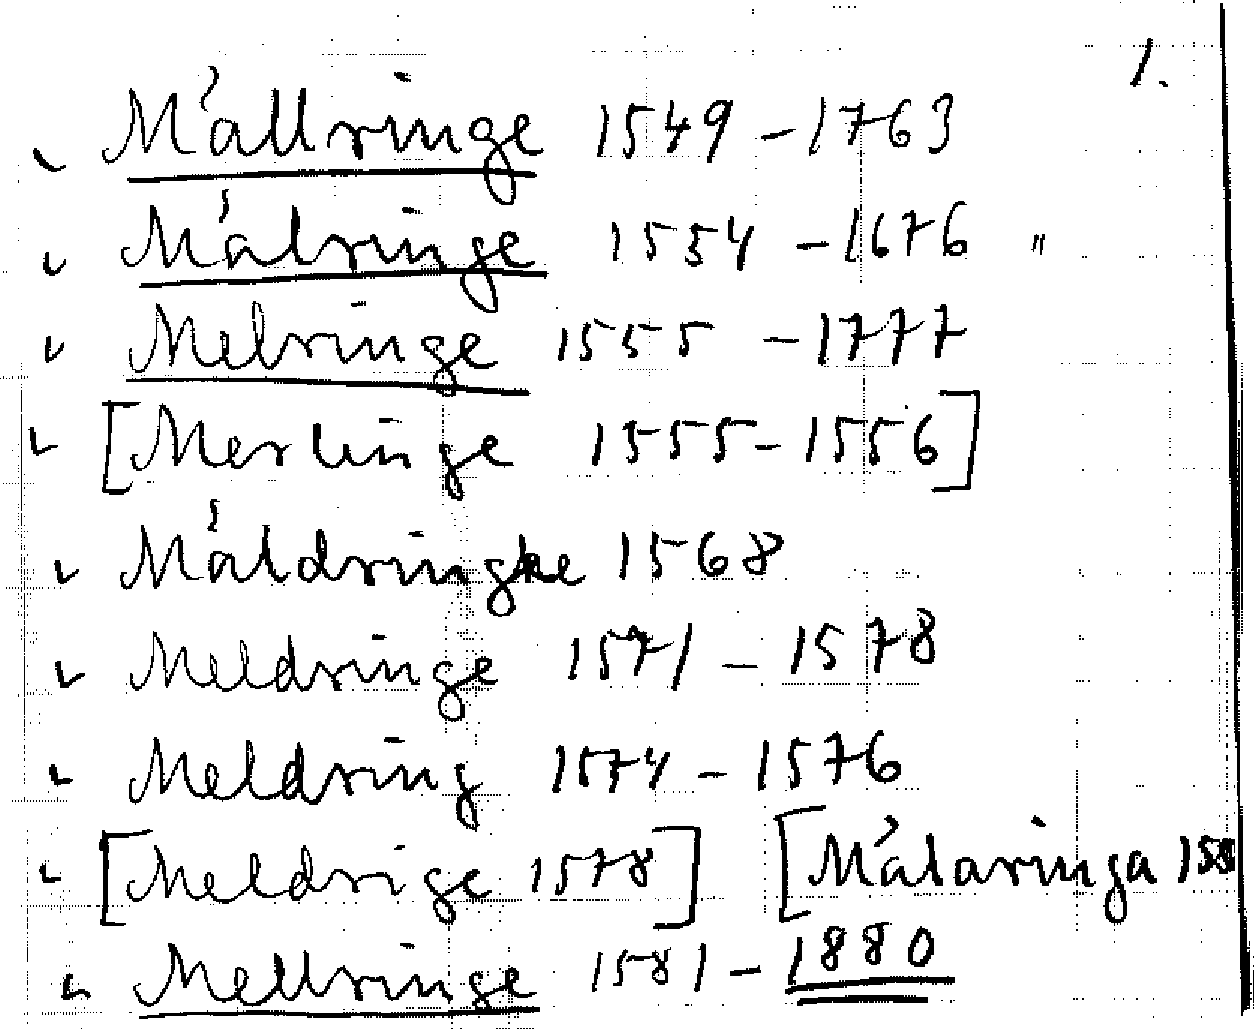 1.
Mållringe 1549 – 1763
Målringe 1554 – 1676 "
Melringe 1555 – 1777
[Merlinge 1555 – 1556]
Måldringhe 1568
Meldringe 1571 – 1578
Meldring 1574 – 1576
[Meldrige 1578] [Målaringa
Mellringe 1581 – 1880